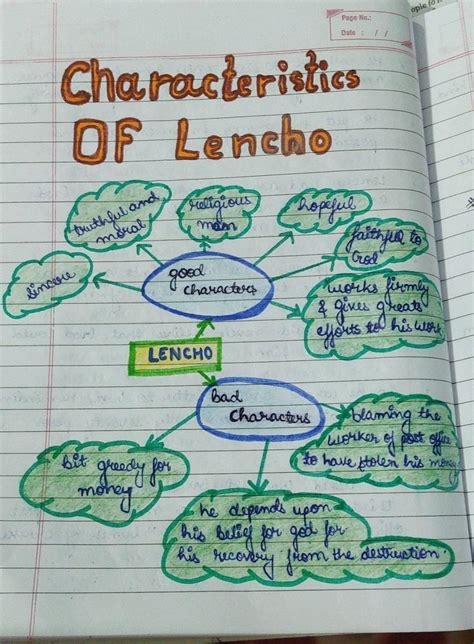 Page No.:
Date : / /
Characteristics
OF Lencho
truthful and
moral
religious
man
hopeful
faithful to
God
sincere
good
characters
works firmly
& gives greats
efforts to his work
LENCHO
bad
characters
blaming the
worker of post office
to have stolen his money
bit greedy for
money
he depends upon
his belief for god for
his recovery from the destruction.